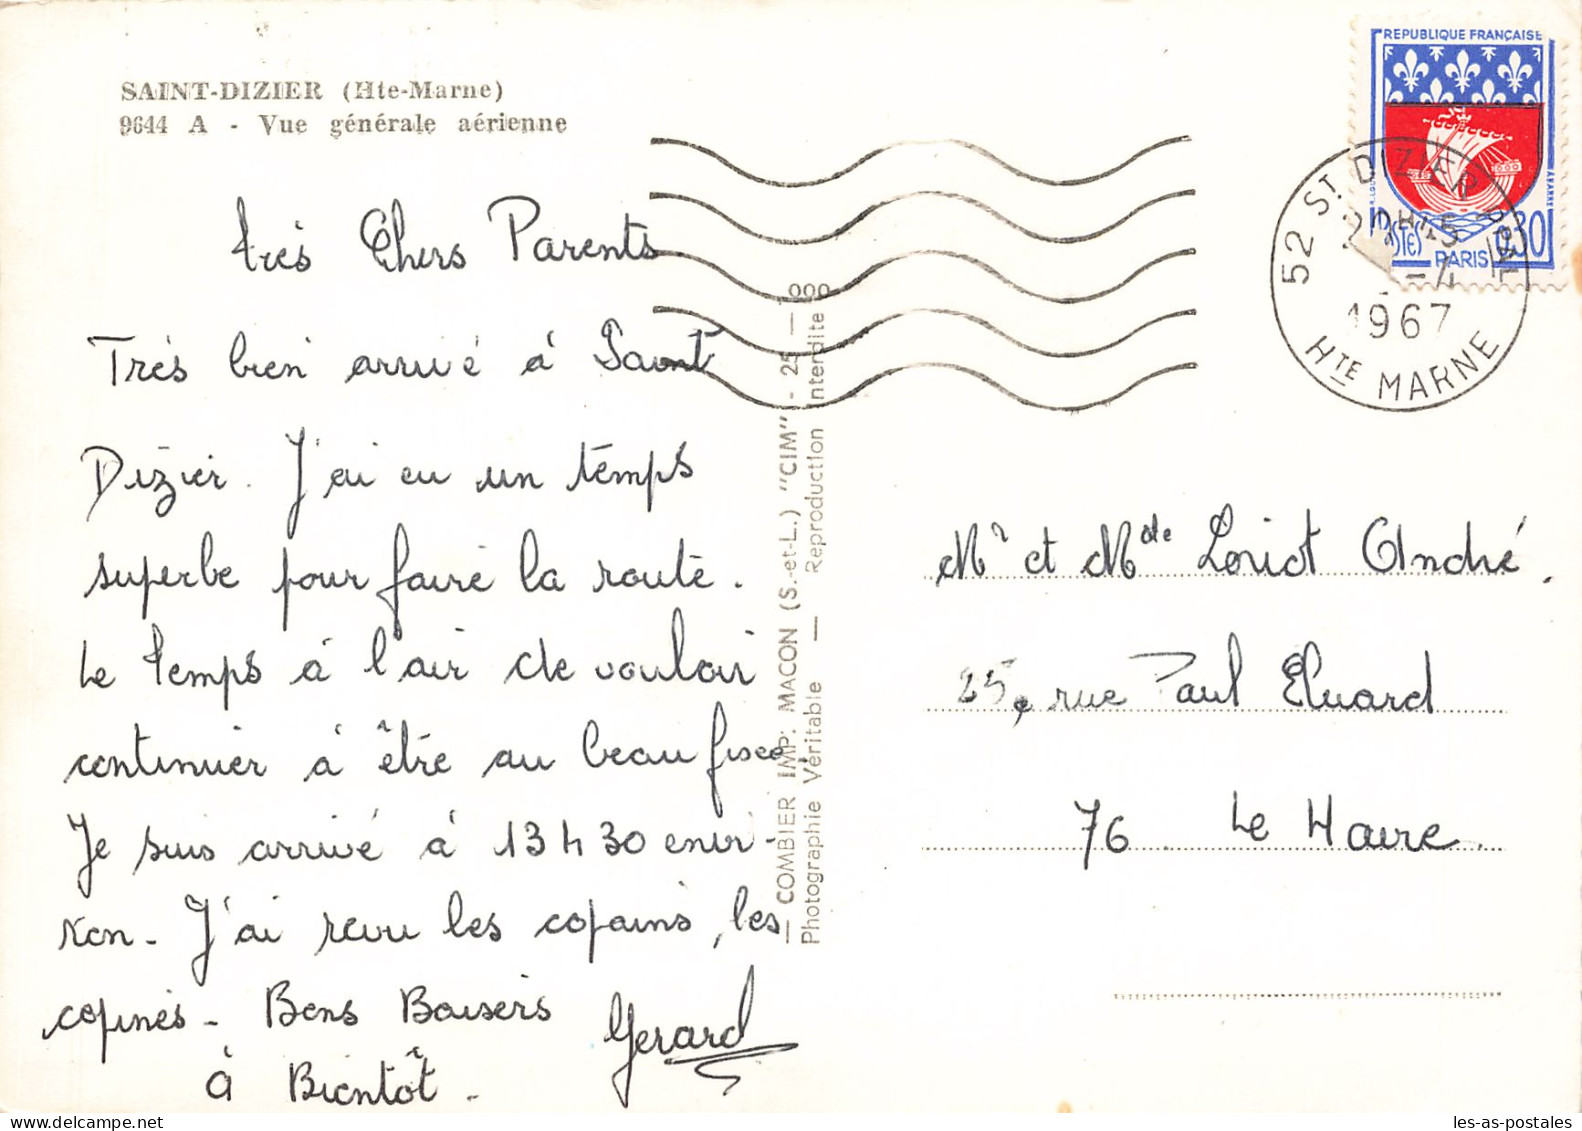 SAINT-DIZIER (Hte-Marne)
9644 A - Vue générale aérienne
très Chers Parents
Très bien arrivé à Saint
Dizier. J'ai eu un temps
superbe pour faire la route.
Le temps à l'air de vouloir
continuer à être au beau fisce,
Je suis arrivé à 13 h 30 envir-
ron - J'ai revu les copains, les
copines - Bons Baisers
à Bientôt - Gerard
— COMBIER IMP. MACON (S.-et-L.) "CIM" - 25 — 000
Photographie Véritable — Reproduction Interdite
REPUBLIQUE FRANÇAISE
POSTES
PARIS
0,30
52 ST DIZIER PPAL
1967
HTE MARNE
Mr et Mde Loriot André.
25, rue Paul Eluard
76. Le Havre.
les-as-postales.com